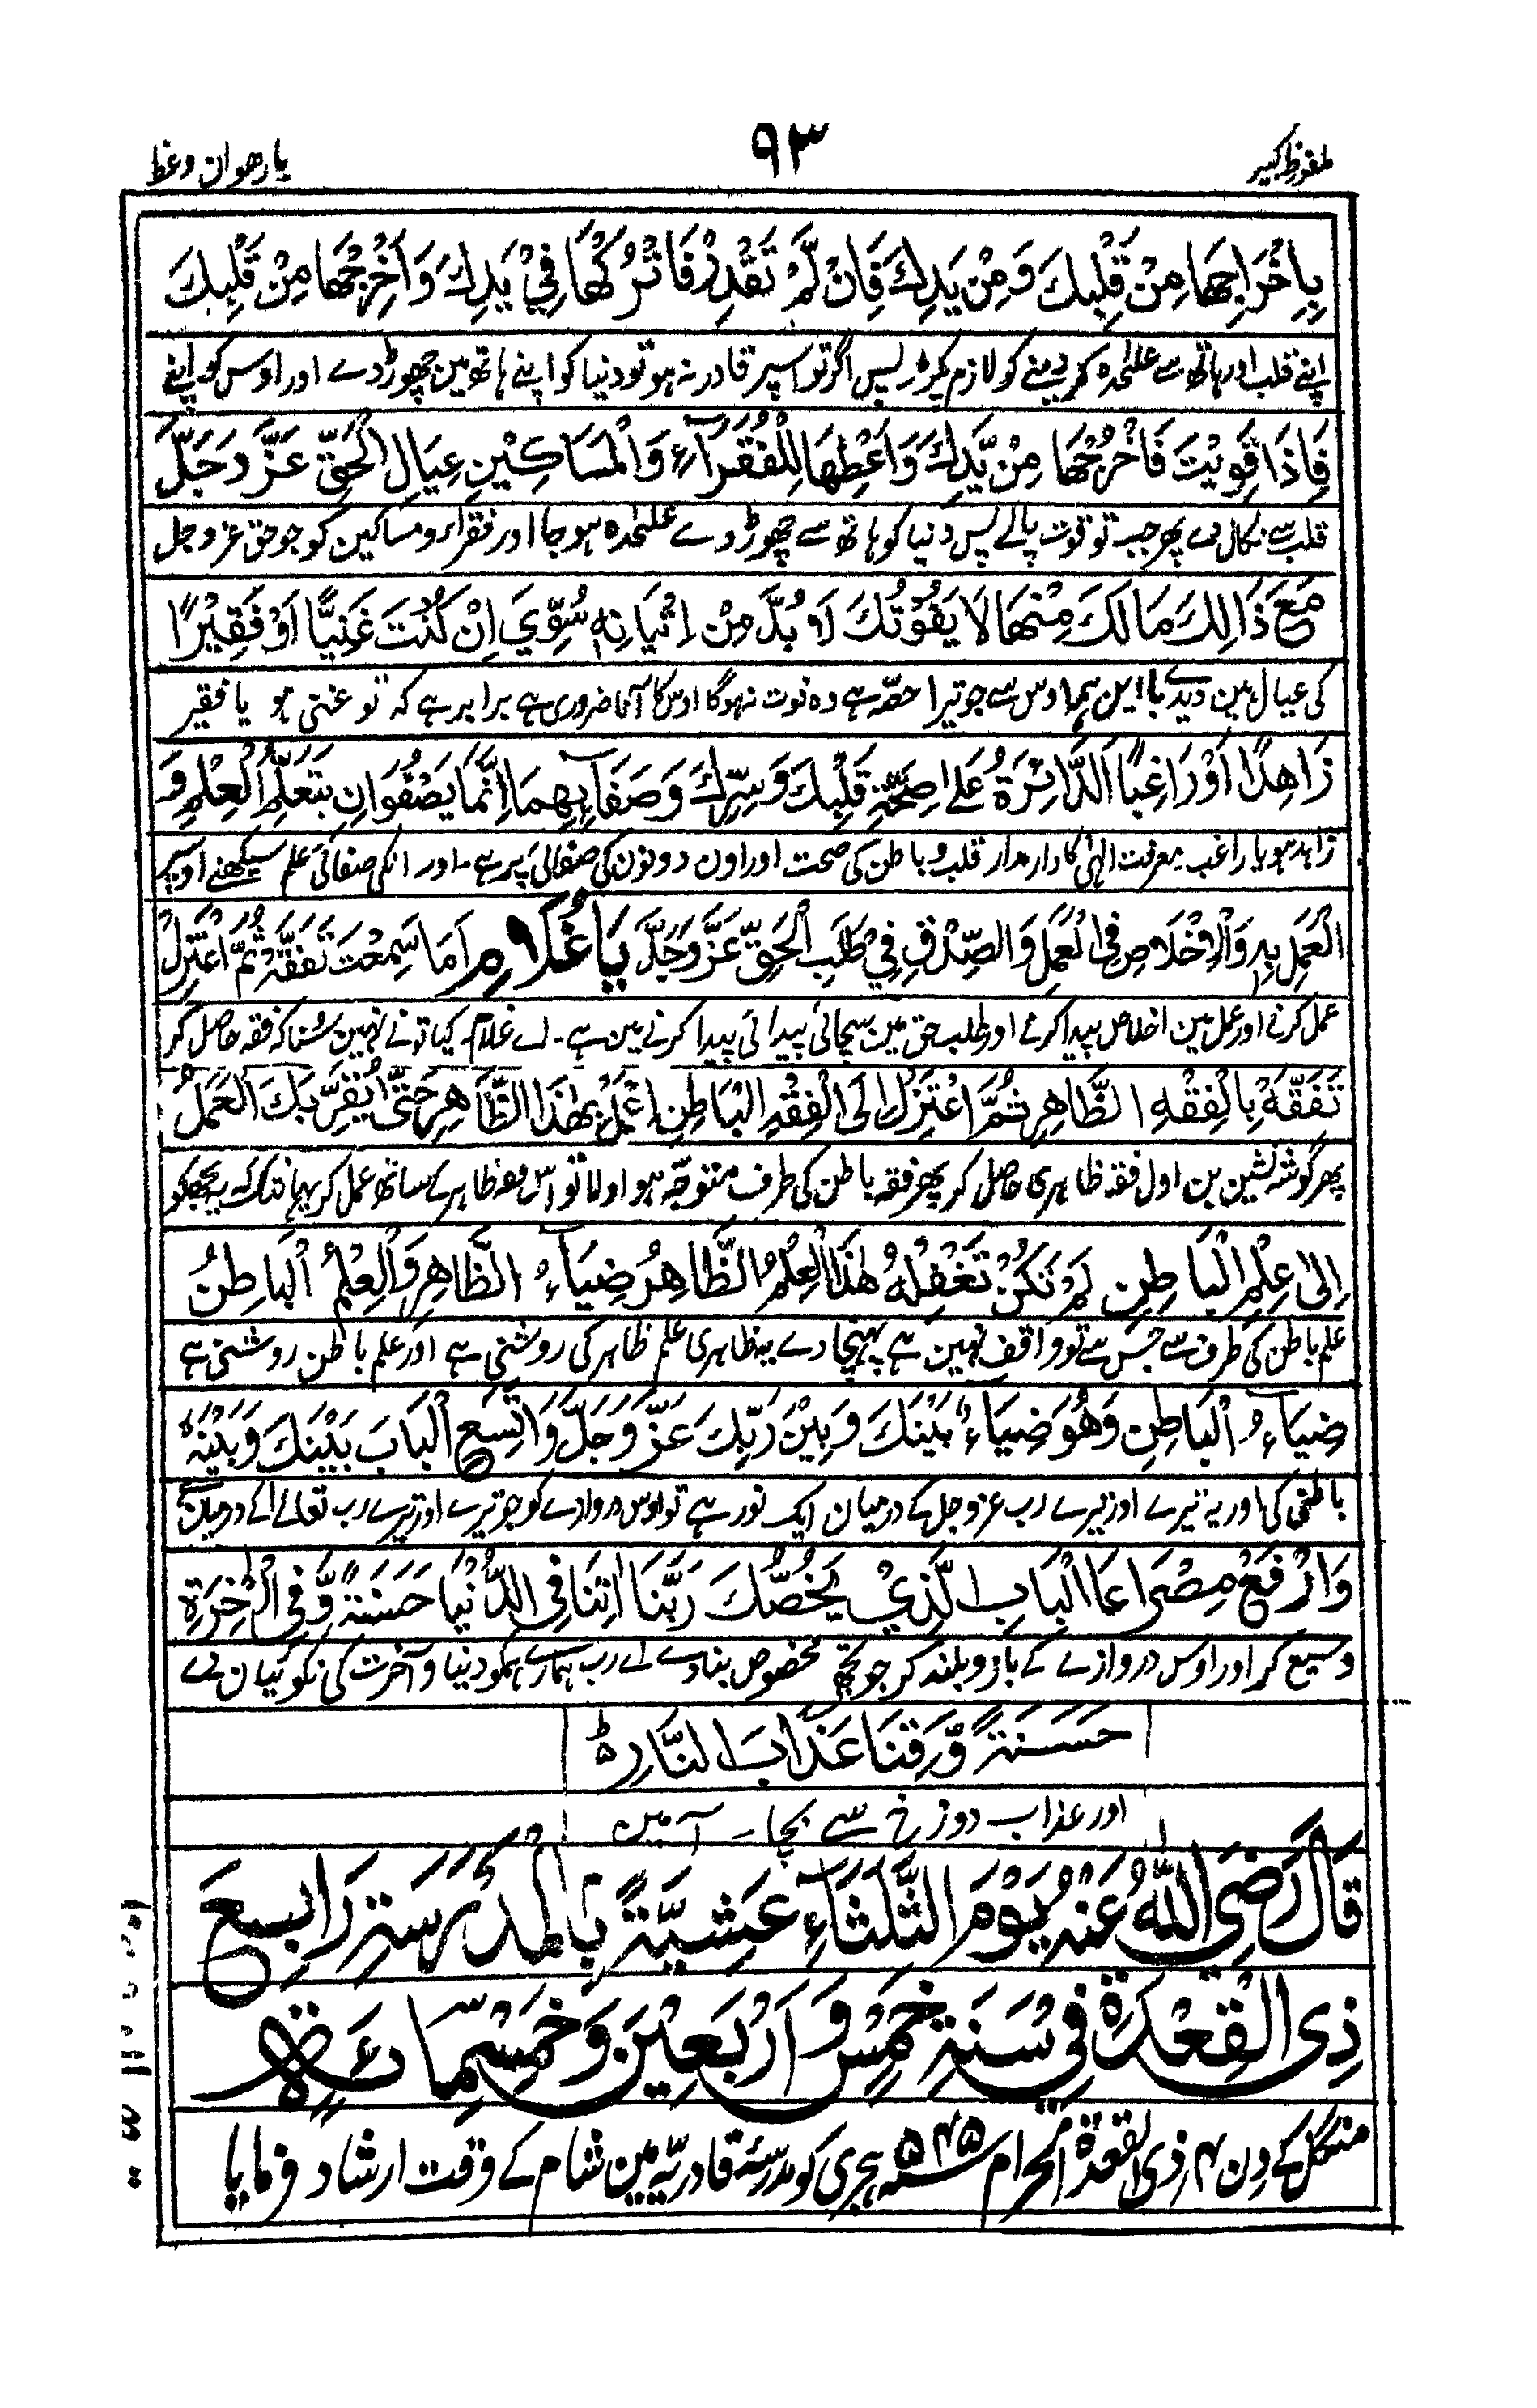 ملفوظ کبیر ۹۳ یارھوان وعظ
بِاِخْرَاجِهَا مِنْ قَلْبِكَ وَمِنْ يَدِكَ فَاِنْ لَّمْ تَقْدِرْ فَاتْرُكْهَا فِيْ يَدِكَ وَاَخْرِجْهَا مِنْ قَلْبِكَ
اپنے قلب اور ہاتھ سے علٰحدہ کر دینے کو لازم پکڑ پس اگر تو اسپر قادر نہ ہو تو دنیا کو اپنے ہاتھ مین چھوڑ دے اور اوس کو اپنے
فَاِذَا قَوِيْتَ فَاَخْرِجْهَا مِنْ يَّدِكَ وَاَعْطِهَا لِلْفُقَرَآءِ وَالْمَسَاكِيْنِ عِيَالِ الْحَقِّ عَزَّ وَجَلَّ
قلب سے نکال دے پھر جب تو قوت پالے پس دنیا کو ہاتھ سے چھوڑ دے علٰحدہ ہو جا اور فقراء و مساکین کو جو حق عز وجل
مَعَ ذَالِكَ مَا لَكَ مِنْهَا لَا يَفُوْتُكَ لَا بُدَّ مِنْ اِتْيَانِهٖ سُوِّيَ اِنْ كُنْتَ غَنِيًّا اَوْ فَقِيْرًا
کی عیال ہین دیدے با این ہمہ اوس سے جو تیرا حصّہ ہے وہ فوت نہوگا اوس کا آنا ضروری ہے برابر ہے کہ تو غنی ہو یا فقیر
زَاهِدًا اَوْ رَاغِبًا اَلدَّائِرَةُ عَلٰى صِحَّةِ قَلْبِكَ وَسِرِّكَ وَصَفَآئِهِمَا اِنَّمَا يَصْفُوَانِ بِتَعَلُّمِ الْعِلْمِ وَ
زاہد ہو یا راغب معرفت الہٰی کا دارمدار قلب و باطن کی صحت اور اون دونون کی صفائی پر ہے۔ اور انکی صفائی علم سیکھنے اوسپر
الْعَمَلِ بِهٖ وَالْاِخْلَاصِ فِي الْعَمَلِ وَالصِّدْقِ فِيْ طَلَبِ الْحَقِّ عَزَّ وَجَلَّ يَا غُلَامُ اَمَا سَمِعْتَ تَفَقَّهْ ثُمَّ اعْتَزِلْ
عمل کرنے اور عمل مین اخلاص پیدا کرنے اور طلب حق مین سچائی پیدائی پیدا کرنے مین ہے۔ اے غلام۔ کیا تونے نہین سُنا کہ فقہ حاصل کر
تَفَقَّهْ بِالْفِقْهِ الظَّاهِرِ ثُمَّ اعْتَزِلْ اِلَى الْفِقْهِ الْبَاطِنِ اِعْمَلْ بِهٰذَا الظَّاهِرِ حَتّٰى يُقَرِّبَكَ الْعَمَلُ
پھر گوشہ نشین بن اول فقہ ظاہری حاصل کر پھر فقہ باطن کی طرف متوجّہ ہو اولا تو اس فقہ ظاہر کے ساتھ عمل کر یہانتک کہ یہ تجھکو
اِلٰى عِلْمِ الْبَاطِنِ لَمْ تَكُنْ تَغْفِلُهٗ هٰذَا الْعِلْمُ الظَّاهِرُ ضِيَآءُ الظَّاهِرِ وَالْعِلْمُ الْبَاطِنُ
علم باطن کی طرف سے جس سے تو واقف نہین ہے پہنچا دے یہ ظاہری علم ظاہر کی روشنی ہے اور علم باطن روشنی ہے
ضِيَآءُ الْبَاطِنِ وَهُوَ ضِيَاءٌ بَيْنَكَ وَبَيْنَ رَبِّكَ عَزَّ وَجَلَّ وَاتَّسِعِ الْبَابَ بَيْنَكَ وَبَيْنَهٗ
باطنی کی اور یہ تیرے اور تیرے رب عز وجل کے درمیان ایک نور ہے تو اوس دروازے کو جو تیرے اور تیرے رب تعالےٰ کے درمیان ہے
وَارْفَعْ مِصْرَاعَا الْبَابِ الَّذِيْ يَخُصُّكَ رَبَّنَا اٰتِنَا فِي الدُّنْيَا حَسَنَةً وَّفِي الْاٰخِرَةِ
وسیع کر اور اوس دروازے کے بازو بلند کر جو تجھے مخصوص بنا دے اے رب ہمارے ہمکو دنیا و آخرت کی نکوئیان دے
حَسَنَةً وَّقِنَا عَذَابَ النَّارِ ہ
اور عذاب دوزخ سے بچا۔ آمین
قَالَ رَضِيَ اللّٰهُ عَنْهُ يَوْمَ الثُّلَثَآءِ عَشِيَّةً بِالْمَدْرَسَةِ رَابِعَ
ذِي الْقَعْدَةِ فِيْ سَنَةِ خَمْسٍ وَاَرْبَعِيْنَ وَخَمْسِمِائَةٍ
منگل کے دن ۴ ذی القعدۃ الحرام ۵۴۵ سنہ ہجری کو مدرسۂ قادریّہ مین شام کے وقت ارشاد فرمایا